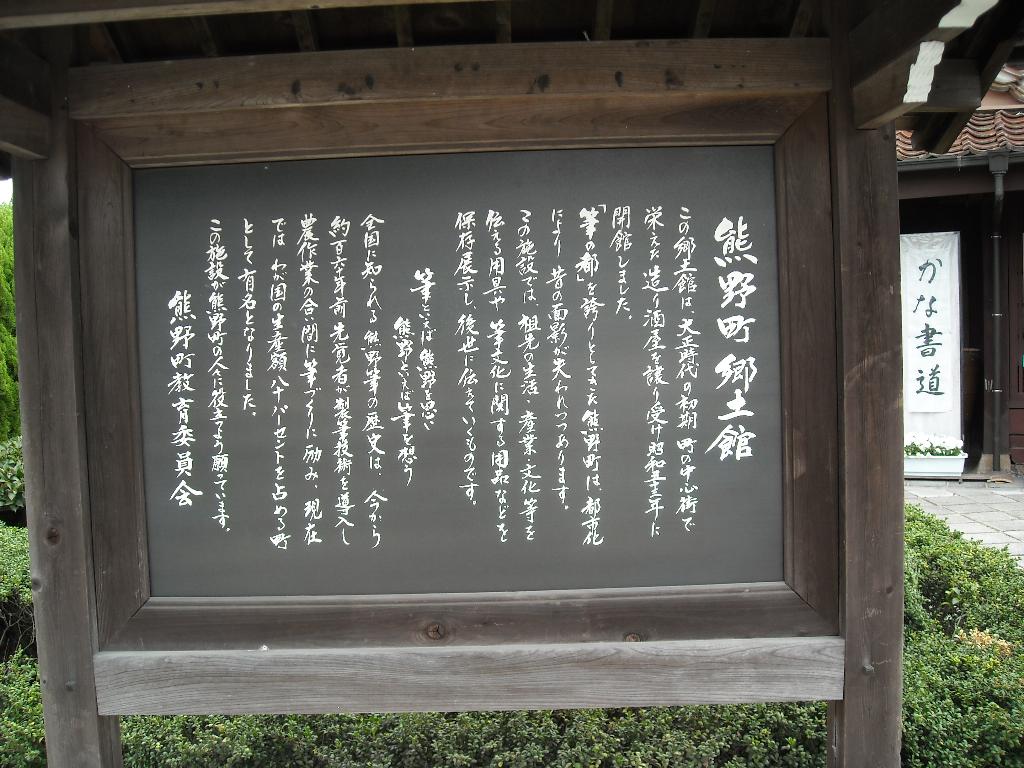 熊野町郷土館
この郷土館は、大正時代の初期 町の中心街で
栄えた 造り酒屋を譲り受け 昭和五十三年に
開館しました。
「筆の都」を誇りとしてきた熊野町は、都市化
により 昔の面影が失われつつあります。
この施設では、祖先の生活・産業・文化等を
伝える用具や 筆文化に関する用品などを
保存展示し、後世に伝えていくものです。
筆といえば 熊野を思い
熊野といえば 筆を想う
全国に知られる 熊野筆の歴史は、今から
約百五十年前 先覚者が製筆技術を導入し
農作業の合間に筆づくりに励み、現在
では わが国の生産額 八十パーセントを占める町
として有名となりました。
この施設が熊野町の人に役立つよう願っています。
熊野町教育委員会
かな書道